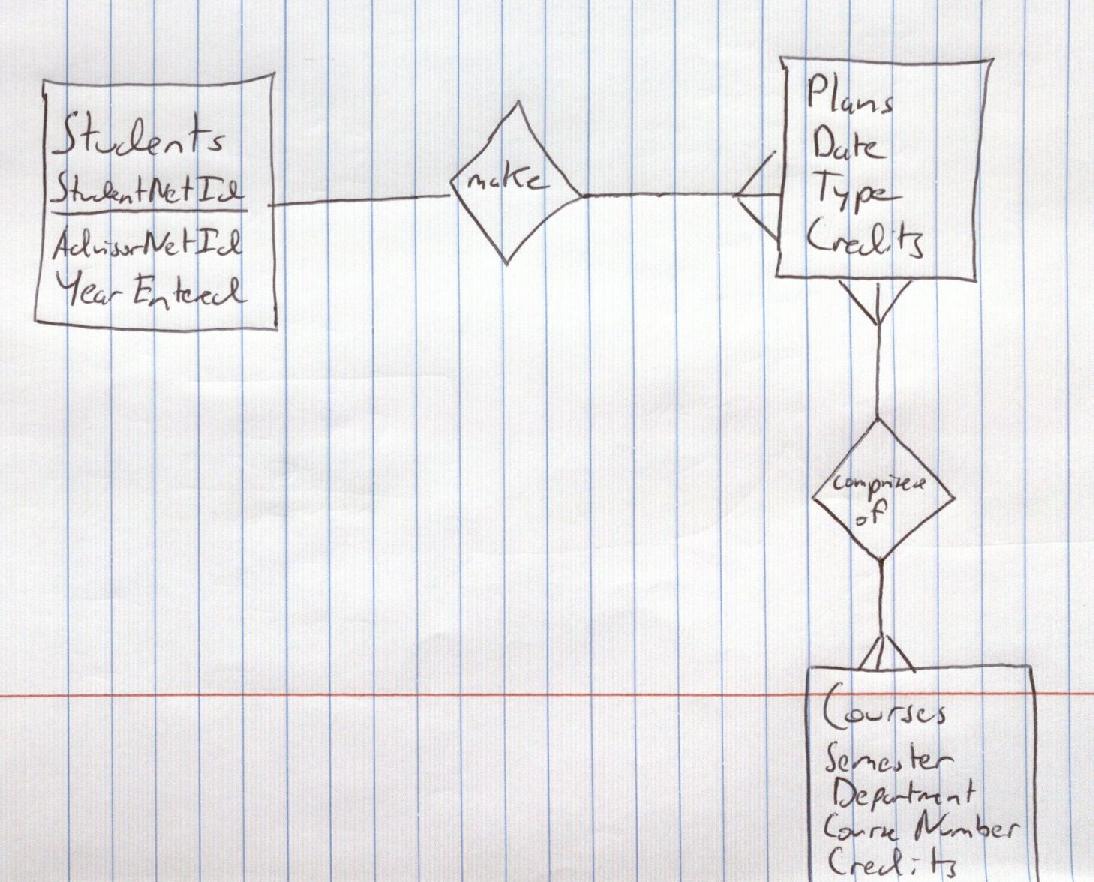 Students
StudentNetId
AdvisorNetId
Year Entered
make
Plans
Date
Type
Credits
comprised
of
Courses
Semester
Department
Course Number
Credits